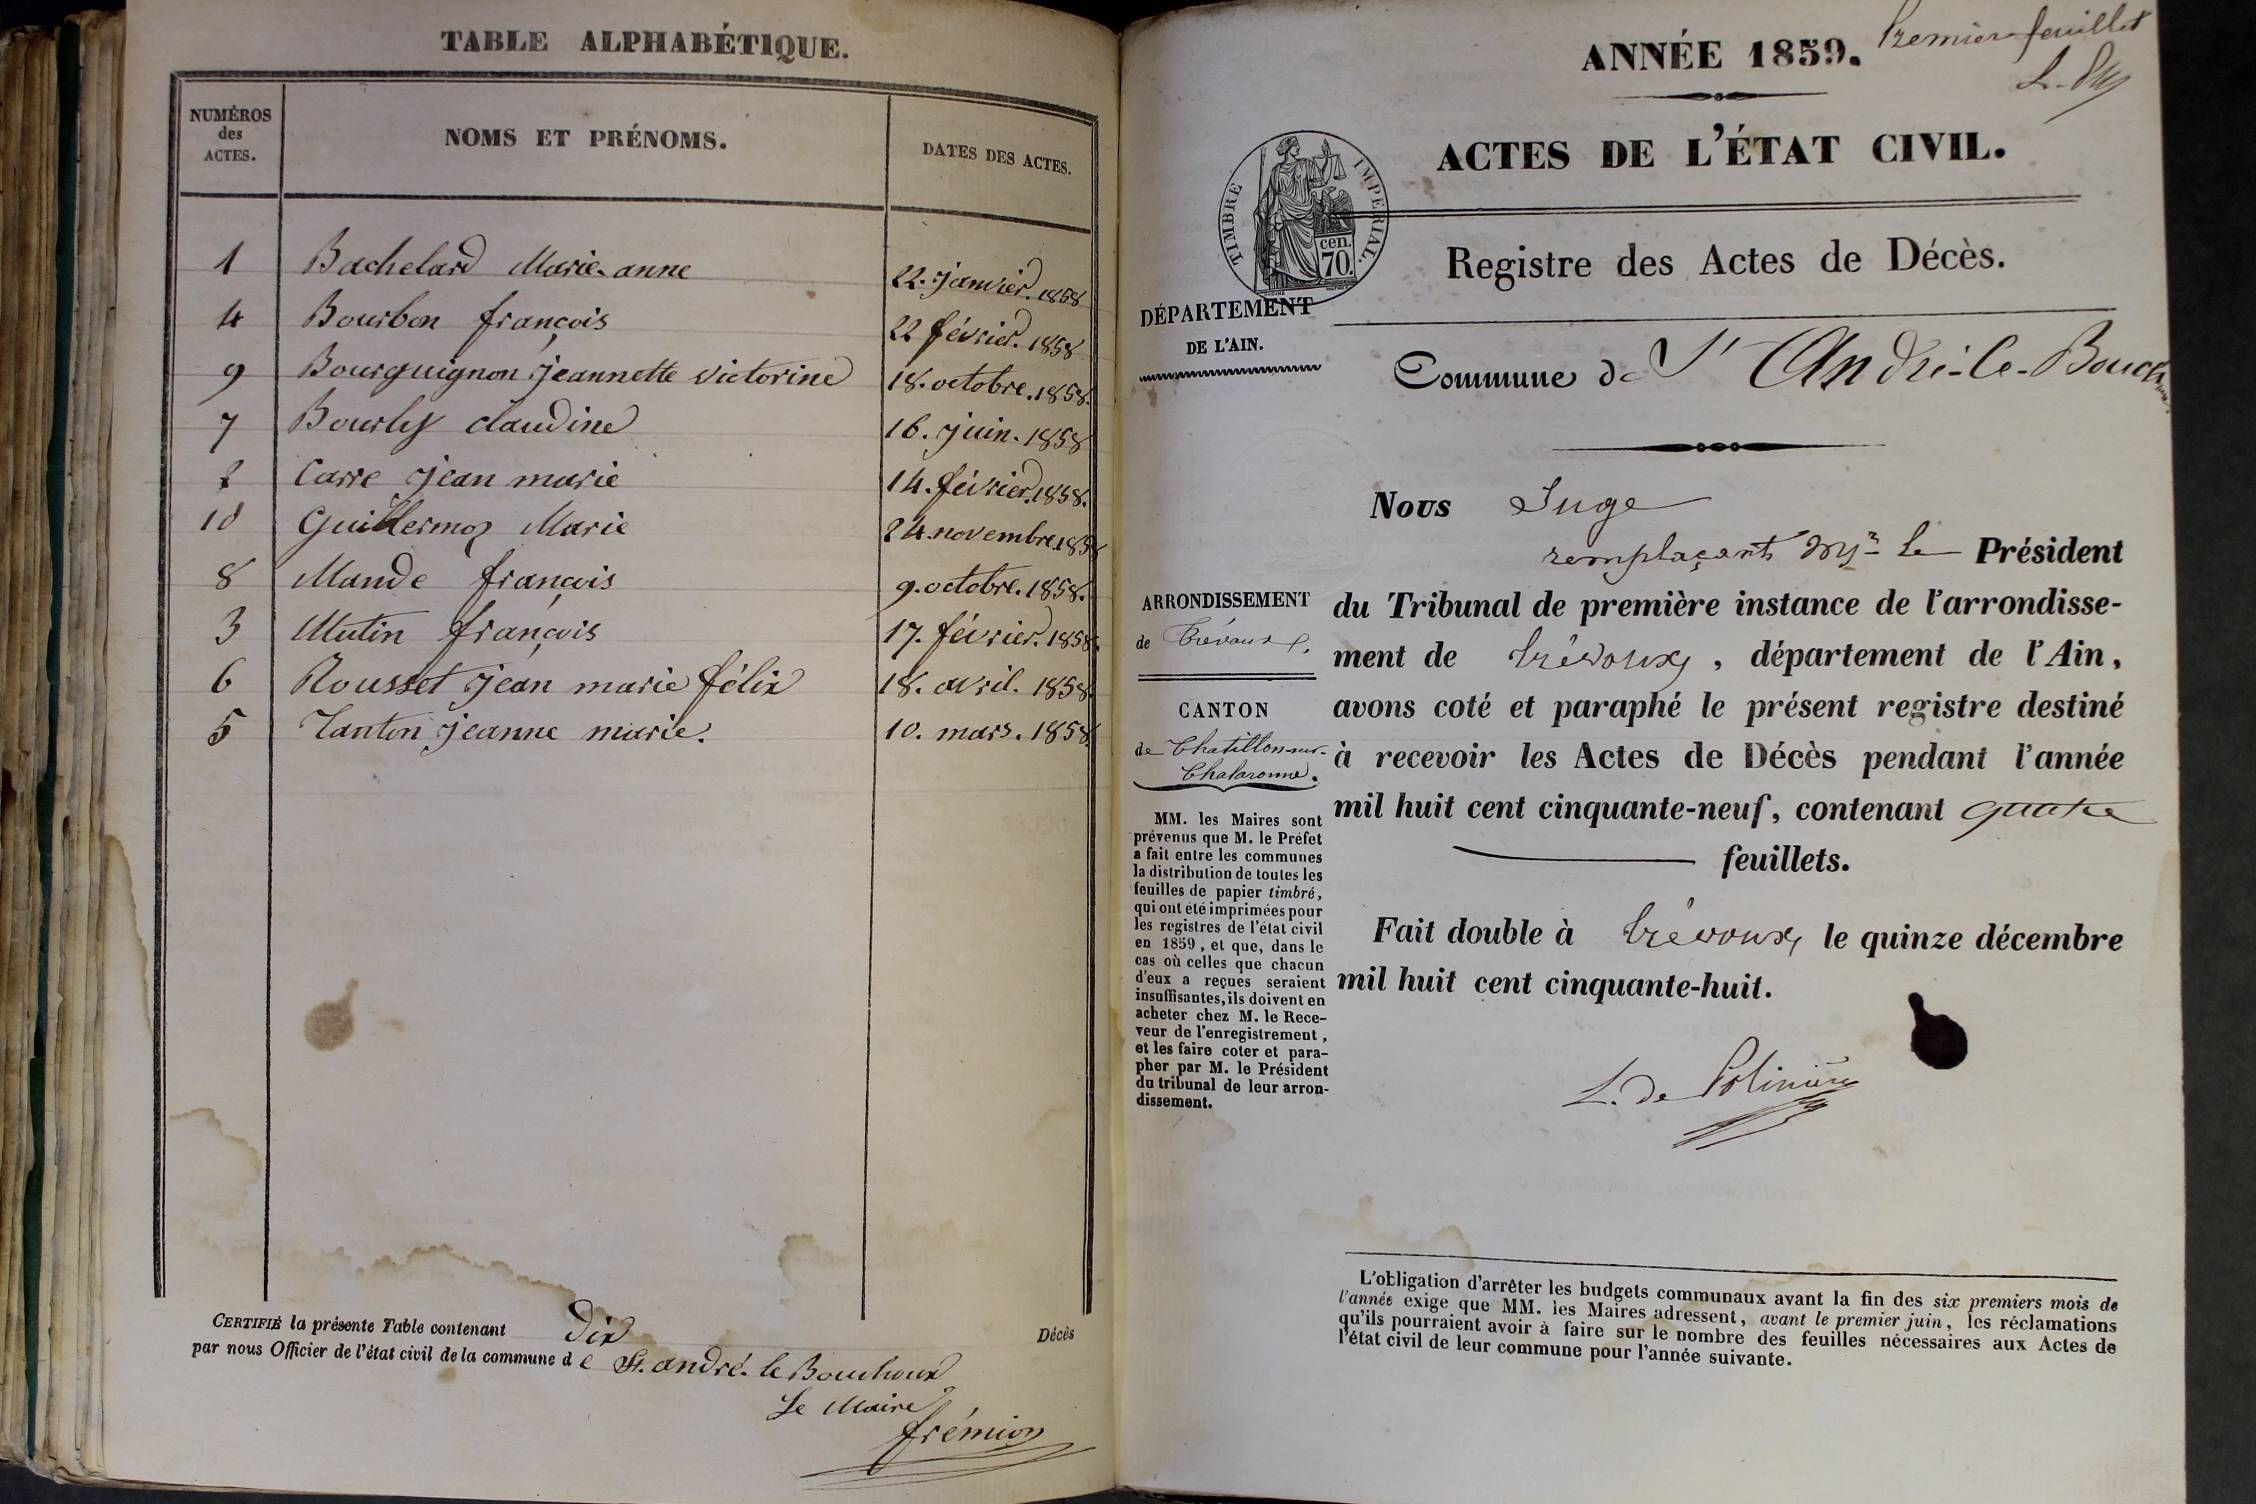 TABLE ALPHABÉTIQUE.
NUMÉROS
des
ACTES.
NOMS ET PRÉNOMS.
DATES DES ACTES.
1 Bachelard Marie-anne 22. janvier. 1858
4 Bourbon françois 22 février. 1858
9 Bourguignon jeannette victorine 18. octobre. 1858.
7 Bourly claudine 16. juin. 1858
2 Carre jean marie 14. février. 1858.
10 Guillermoz Marie 24. novembre. 1858
8 Mande françois 9. octobre. 1858.
3 Mutin françois 17. février. 1858.
6 Rousset jean marie félix 18. avril. 1858.
5 Tanton jeanne marie. 10. mars. 1858.
CERTIFIÉ la présente Table contenant dix Décès
par nous Officier de l'état civil de la commune de St. andré. le Bouchoux
Le Maire
frémion
Premier feuillet
ANNÉE 1859.
ACTES DE L'ÉTAT CIVIL.
TIMBRE IMPÉRIAL.
cen.
70.
Registre des Actes de Décès.
DÉPARTEMENT
DE L'AIN.
Commune de St André-le-Bouchoux
Nous Juge
remplaçant Mr le Président
du Tribunal de première instance de l'arrondisse-
ment de Trévoux, département de l'Ain,
avons coté et paraphé le présent registre destiné
à recevoir les Actes de Décès pendant l'année
mil huit cent cinquante-neuf, contenant quatre
feuillets.
Fait double à Trévoux, le quinze décembre
mil huit cent cinquante-huit.
L. de Polinière
ARRONDISSEMENT
de Trévoux.
CANTON
de Chatillon-sur-
Chalaronne.
MM. les Maires sont
prévenus que M. le Préfet
a fait entre les communes
la distribution de toutes les
feuilles de papier timbré,
qui ont été imprimées pour
les registres de l'état civil
en 1859, et que, dans le
cas où celles que chacun
d'eux a reçues seraient
insuffisantes, ils doivent en
acheter chez M. le Rece-
veur de l'enregistrement,
et les faire coter et para-
pher par M. le Président
du tribunal de leur arron-
dissement.
L'obligation d'arrêter les budgets communaux avant la fin des six premiers mois de
l'année exige que MM. les Maires adressent, avant le premier juin, les réclamations
qu'ils pourraient avoir à faire sur le nombre des feuilles nécessaires aux Actes de
l'état civil de leur commune pour l'année suivante.